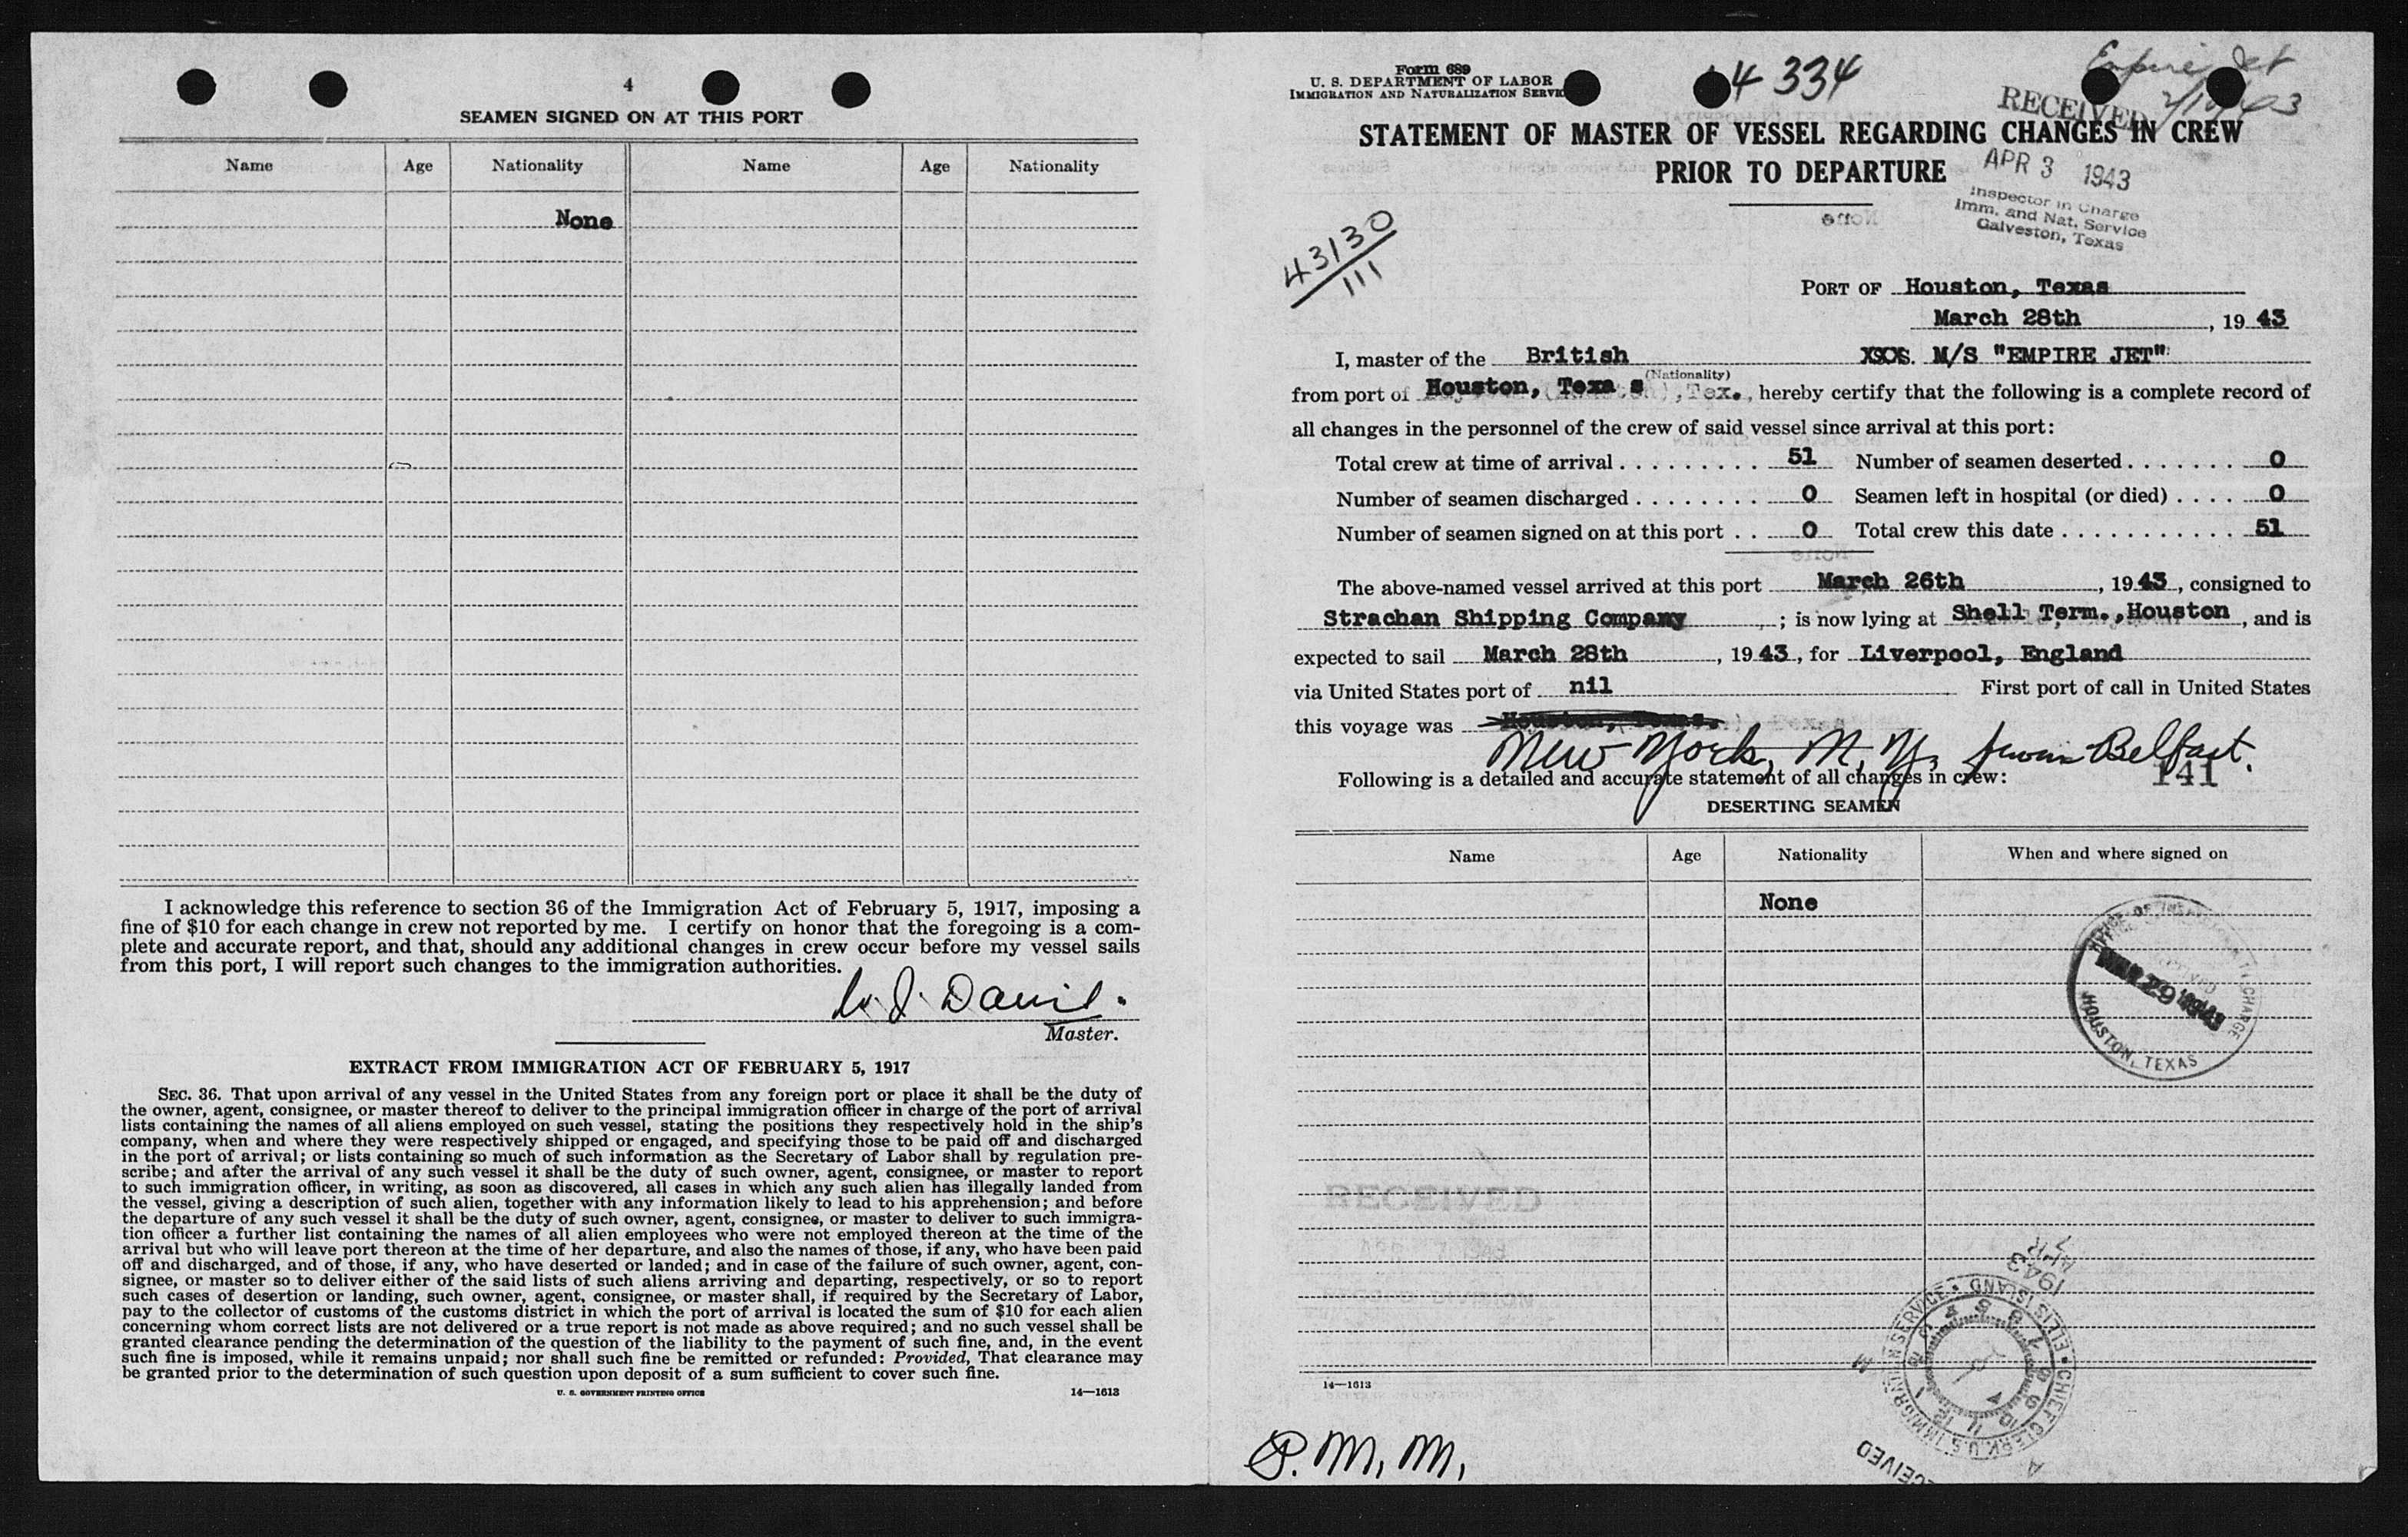 4
SEAMEN SIGNED ON AT THIS PORT
Name Age Nationality Name Age Nationality
None
I acknowledge this reference to section 36 of the Immigration Act of February 5, 1917, imposing a
fine of $10 for each change in crew not reported by me. I certify on honor that the foregoing is a com-
plete and accurate report, and that, should any additional changes in crew occur before my vessel sails
from this port, I will report such changes to the immigration authorities.
Master.
EXTRACT FROM IMMIGRATION ACT OF FEBRUARY 5, 1917
SEC. 36. That upon arrival of any vessel in the United States from any foreign port or place it shall be the duty of
the owner, agent, consignee, or master thereof to deliver to the principal immigration officer in charge of the port of arrival
lists containing the names of all aliens employed on such vessel, stating the positions they respectively hold in the ship's
company, when and where they were respectively shipped or engaged, and specifying those to be paid off and discharged
in the port of arrival; or lists containing so much of such information as the Secretary of Labor shall by regulation pre-
scribe; and after the arrival of any such vessel it shall be the duty of such owner, agent, consignee, or master to report
to such immigration officer, in writing, as soon as discovered, all cases in which any such alien has illegally landed from
the vessel, giving a description of such alien, together with any information likely to lead to his apprehension; and before
the departure of any such vessel it shall be the duty of such owner, agent, consignee, or master to deliver to such immigra-
tion officer a further list containing the names of all alien employees who were not employed thereon at the time of the
arrival but who will leave port thereon at the time of her departure, and also the names of those, if any, who have been paid
off and discharged, and of those, if any, who have deserted or landed; and in case of the failure of such owner, agent, con-
signee, or master so to deliver either of the said lists of such aliens arriving and departing, respectively, or so to report
such cases of desertion or landing, such owner, agent, consignee, or master shall, if required by the Secretary of Labor,
pay to the collector of customs of the customs district in which the port of arrival is located the sum of $10 for each alien
concerning whom correct lists are not delivered or a true report is not made as above required; and no such vessel shall be
granted clearance pending the determination of the question of the liability to the payment of such fine, and, in the event
such fine is imposed, while it remains unpaid; nor shall such fine be remitted or refunded: Provided, That clearance may
be granted prior to the determination of such question upon deposit of a sum sufficient to cover such fine.
U. S. GOVERNMENT PRINTING OFFICE 14—1613
Form 689
U. S. DEPARTMENT OF LABOR
IMMIGRATION AND NATURALIZATION SERVICE
4 334
RECEIVED
STATEMENT OF MASTER OF VESSEL REGARDING CHANGES IN CREW
PRIOR TO DEPARTURE
APR 3 1943
Inspector in Charge
Imm. and Nat. Service
Galveston, Texas
43130
111
PORT OF Houston, Texas
March 28th, 19 43
I, master of the British XXXS. M/S "EMPIRE JET"
(Nationality)
from port of Houston, Texa s, Tex., hereby certify that the following is a complete record of
all changes in the personnel of the crew of said vessel since arrival at this port:
Total crew at time of arrival 51 Number of seamen deserted 0
Number of seamen discharged 0 Seamen left in hospital (or died) 0
Number of seamen signed on at this port 0 Total crew this date 51
The above-named vessel arrived at this port March 26th, 19 43, consigned to
Strachan Shipping Company; is now lying at Shell Term.,Houston, and is
expected to sail March 28th, 19 43, for Liverpool, England
via United States port of nil First port of call in United States
this voyage was Houston, Texas.
New York, N.Y. from Belfast.
Following is a detailed and accurate statement of all changes in crew: 141
DESERTING SEAMEN
Name Age Nationality When and where signed on
None
OFFICE OF INSPECTOR IN CHARGE
MAR 29 1943
HOUSTON, TEXAS
RECEIVED
APR 7 1943
CHIEF CLERK U.S. IMMIGRATION SERVICE • ELLIS ISLAND
RECEIVED
14—1613
P. M. M.